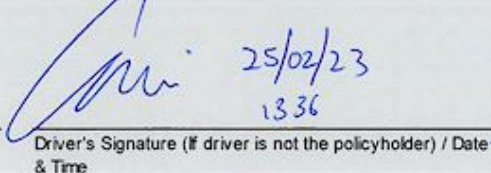 25/02/23
1336
Driver's Signature (If driver is not the policyholder) / Date
& Time